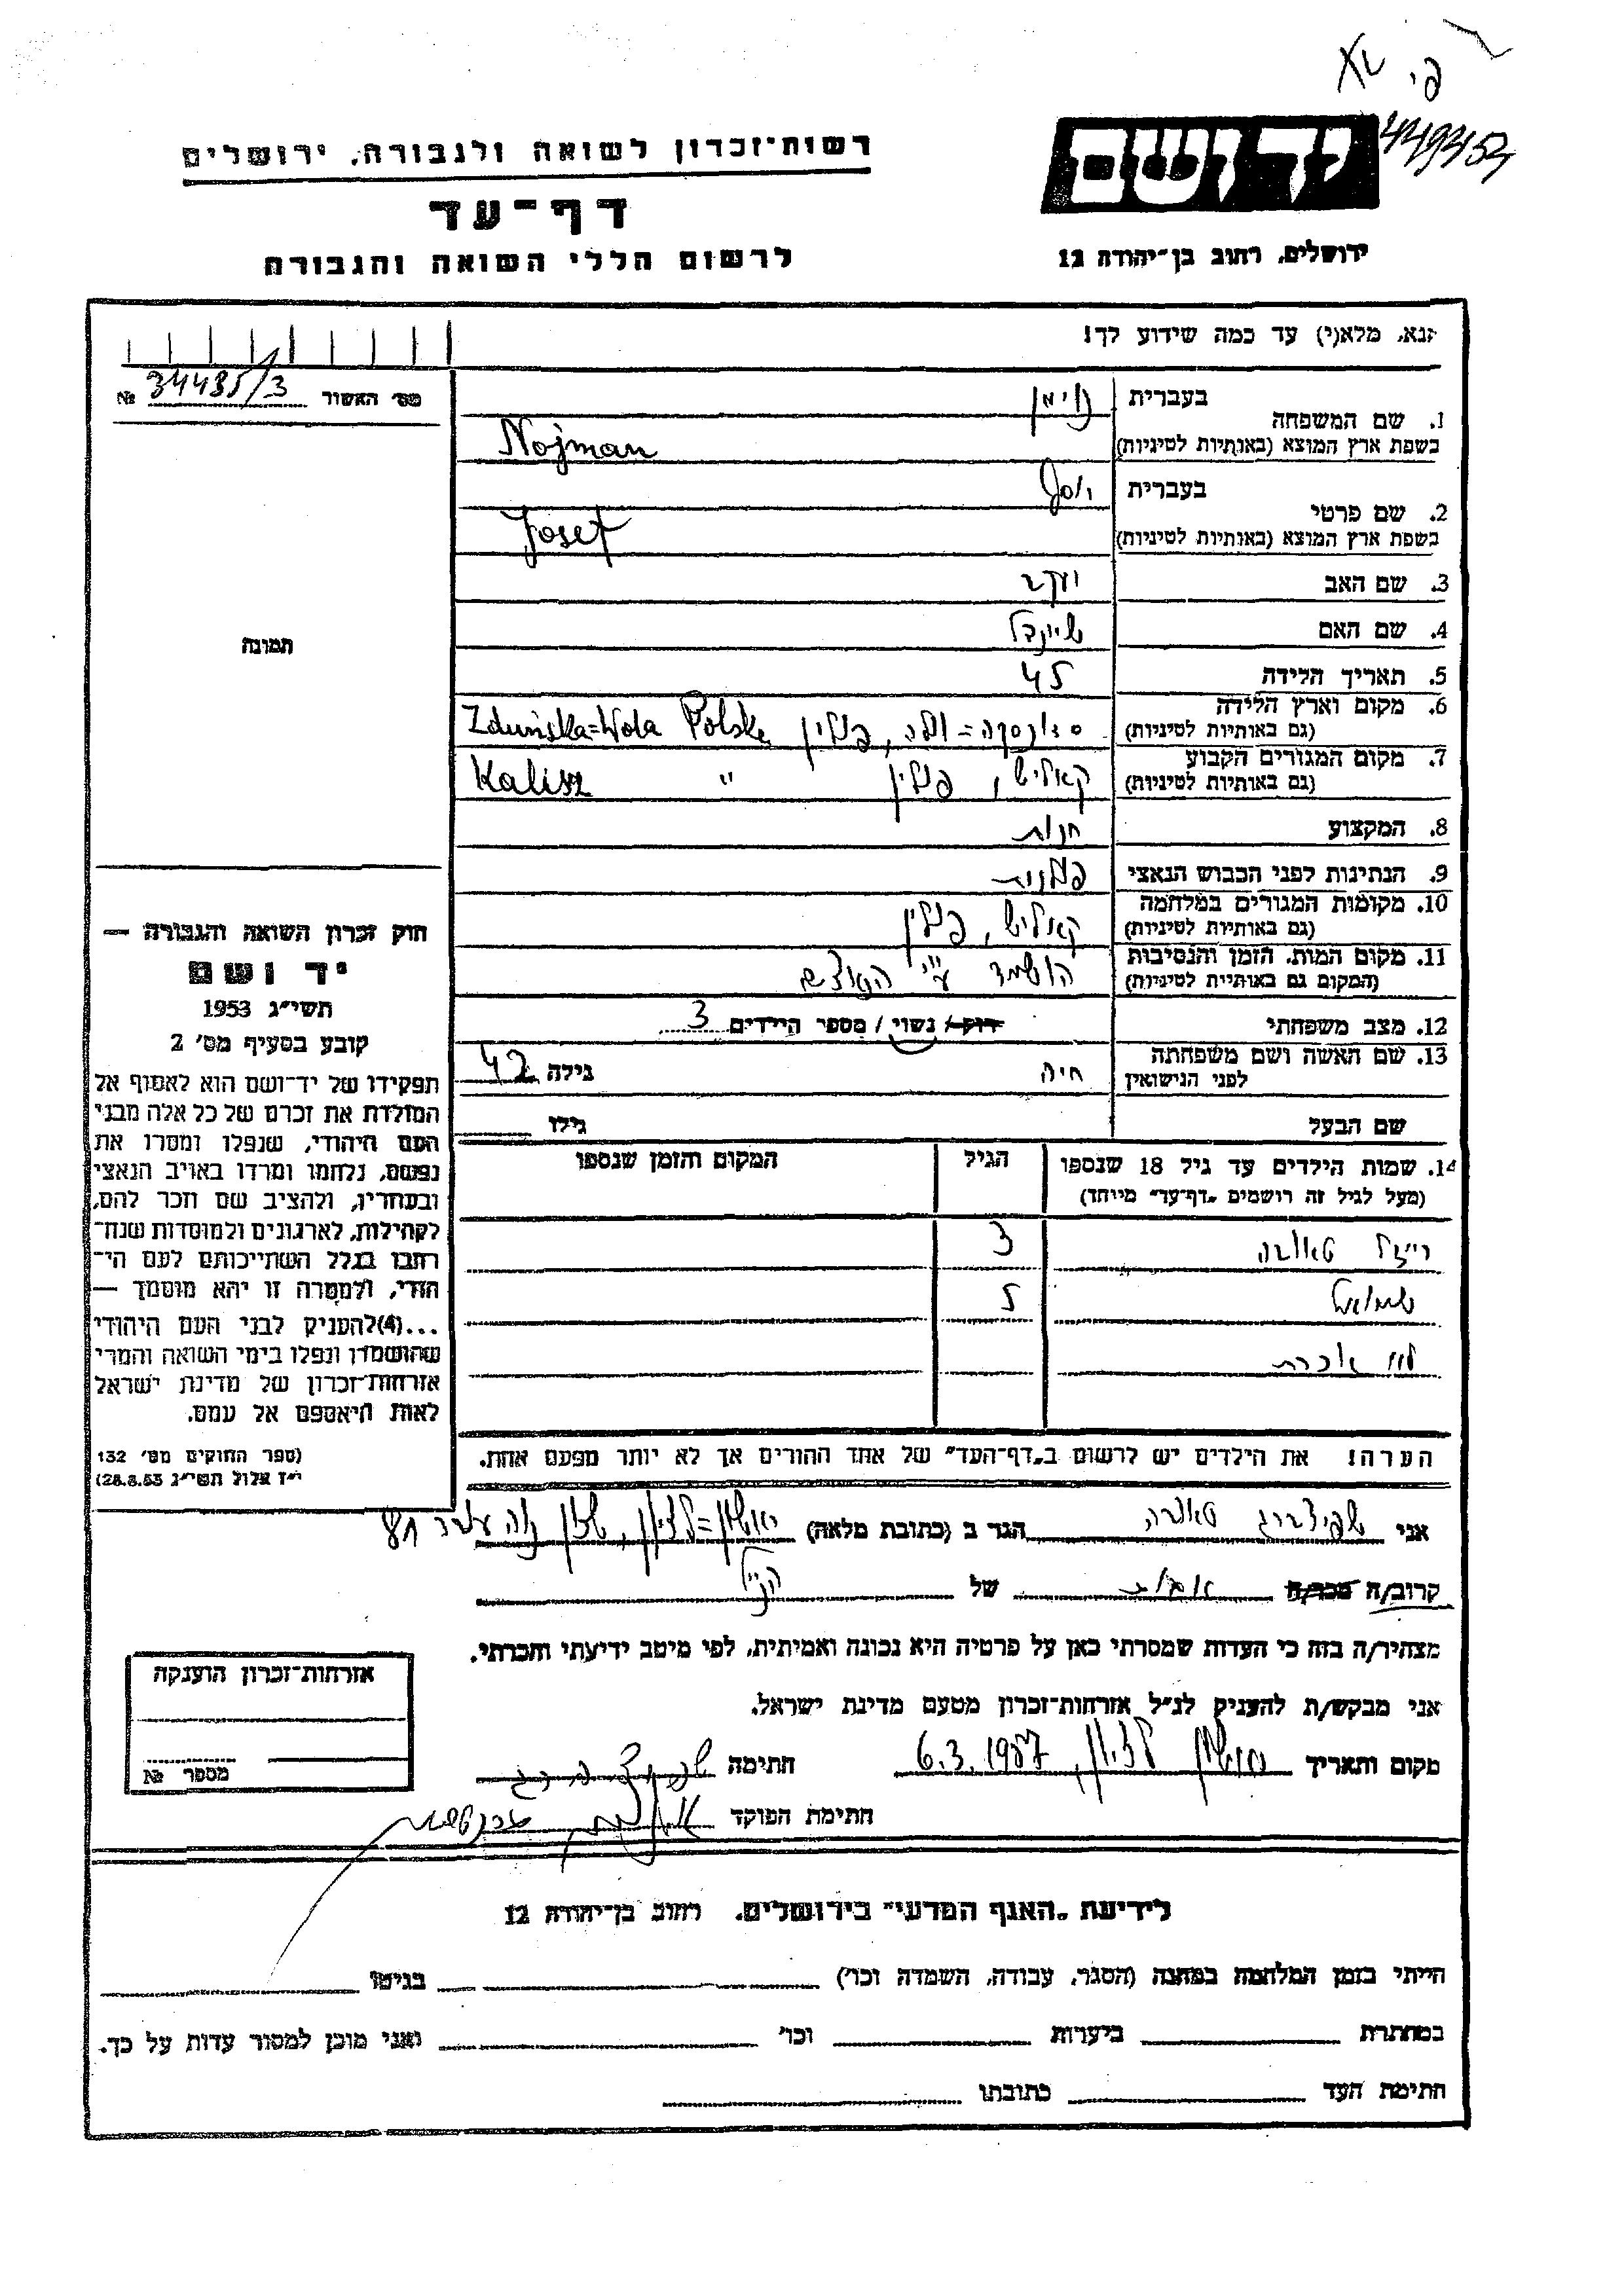 449454
יד ושם
רשות־זכרון לשואה ולגבורה, ירושלים
דף־עד
לרשום חללי השואה והגבורה
ירושלים, רחוב בן־יהודה 12
אנא, מלא(י) עד כמה שידוע לך!
מס' האשור 34435/3 №
1. שם המשפחה בעברית נוימן
בשפת ארץ המוצא (באותיות לטיניות) Nojman
2. שם פרטי בעברית יוסף
בשפת ארץ המוצא (באותיות לטיניות) Josef
3. שם האב יעקב
4. שם האם
5. תאריך הלידה 45
6. מקום וארץ הלידה
(גם באותיות לטיניות) וולה, פולין Zduńska=Wola Polska
7. מקום המגורים הקבוע
(גם באותיות לטיניות) קאליש, פולין " Kalisz
8. המקצוע חנות
9. הנתינות לפני הכבוש הנאצי פולנית
10. מקומות המגורים במלחמה
(גם באותיות לטיניות) קאליש, פולין
11. מקום המות, הזמן והנסיבות
(המקום גם באותיות לטיניות) הושמד ע"י הנאצים
12. מצב משפחתי רווק / נשוי / מספר הילדים 3
13. שם האשה ושם משפחתה
לפני הנישואין חיה גילה 42
שם הבעל גילו
14. שמות הילדים עד גיל 18 שנספו הגיל המקום והזמן שנספו
(מעל לגיל זה רושמים "דף־עד" מיוחד)
רייזל 3
שמואל 5
לא זוכרת
הערה! את הילדים יש לרשום ב"דף־העד" של אחד ההורים אך לא יותר מפעם אחת.
תמונה
חוק זכרון השואה והגבורה —
יד ושם
תשי"ג 1953
קובע בסעיף מס' 2
תפקידו של יד־ושם הוא לאסוף אל
המולדת את זכרם של כל אלה מבני
העם היהודי, שנפלו ומסרו את
נפשם, נלחמו ומרדו באויב הנאצי
ובעוזריו, ולהציב שם וזכר להם,
לקהילות, לארגונים ולמוסדות שנח־
רבו בגלל השתייכותם לעם הי־
הודי, ולמטרה זו יהא מוסמך —
...(4) להעניק לבני העם היהודי
שהושמדו ונפלו בימי השואה והמרי
אזרחות־זכרון של מדינת ישראל
לאות היאספם אל עמם.
(ספר החוקים מס' 132
י"ז אלול תשי"ג 28.8.53)
אני שפיצברג הגר ב (כתובת מלאה) ראשון=לציון, שכון נוה
קרוב/ה מכר/ה של הנ"ל
מצהיר/ה בזה כי העדות שמסרתי כאן על פרטיה היא נכונה ואמיתית, לפי מיטב ידיעתי והכרתי.
אני מבקש/ת להעניק לנ"ל אזרחות־זכרון מטעם מדינת ישראל.
מקום ותאריך ראשון לציון, 6.3.1957 חתימה שפיצברג
חתימת הפוקד
אזרחות־זכרון הוענקה
מספר №
לידיעת "האגף המדעי" בירושלים, רחוב בן־יהודה 12
הייתי בזמן המלחמה במחנה (הסגר, עבודה, השמדה וכו') בגיטו
במחתרת ביערות וכו' ואני מוכן למסור עדות על כך.
חתימת העד כתובתו